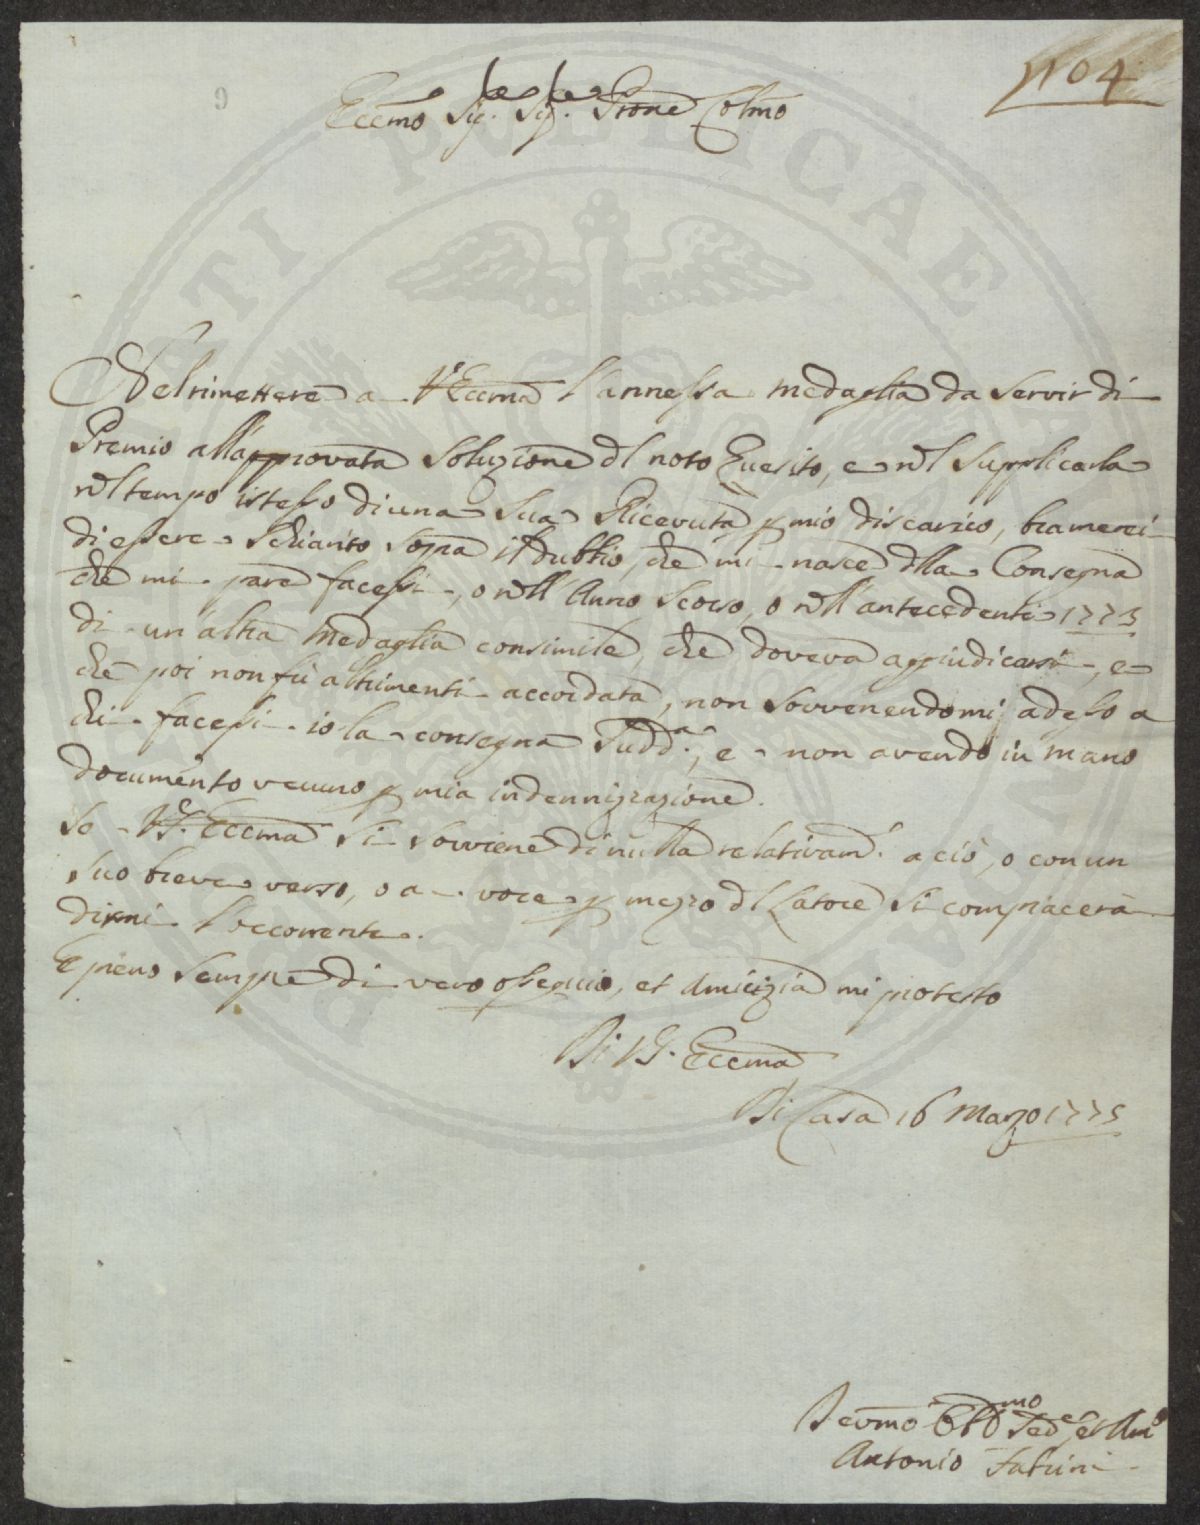 1104
Eccmo Sigre Sigre Prone Colmo
Nel rimettere a V. Eccma l'annessa medaglia da servir di
Premio all'approvata soluzione dl noto Quesito, e nl supplicarla
nl tempo istesso di una sua Ricevuta p mio discarico, bramerei
di essere schiarito sopra il dubbio, che mi nasce dlla Consegna
che mi pare facessi, o nll Anno scorso, o nll'antecedente 1773
di un'altra medaglia consimile, che doveva aggiudicarsi, e
che poi non fù altrimenti accordata, non sovvenendomi adesso a
chi facessi io la consegna sudda; e non avendo in mano
documento veruno p mia indennizzazione.
Se VS. Eccma si sovviene di nulla relativam. a ciò, o con un
suo breve verso, o a voce p mezzo dl Latore si compiacerà
dirmi l'occorrente.
E pieno sempre di vero ossequio, et amicizia mi protesto
Di VS. Eccma
Di Casa 16 Marzo 1775
Devmo Obbmo et Amo
Antonio
PUBLICAE